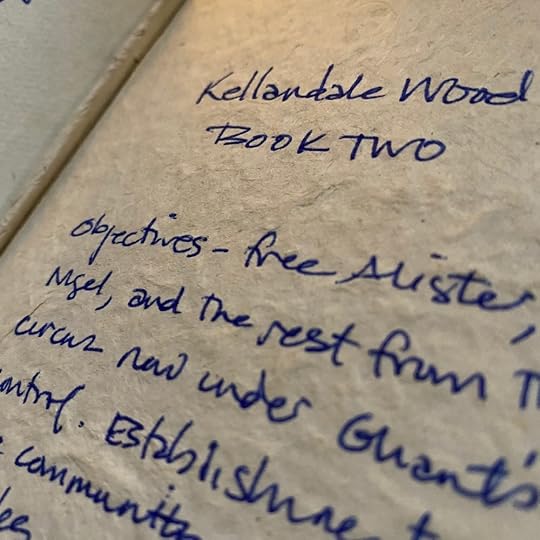 Kellandale Wood
BOOK TWO
Objectives - free Alister,
Nigel, and the rest from
circus now under Ghant's
control. Establishing
communities